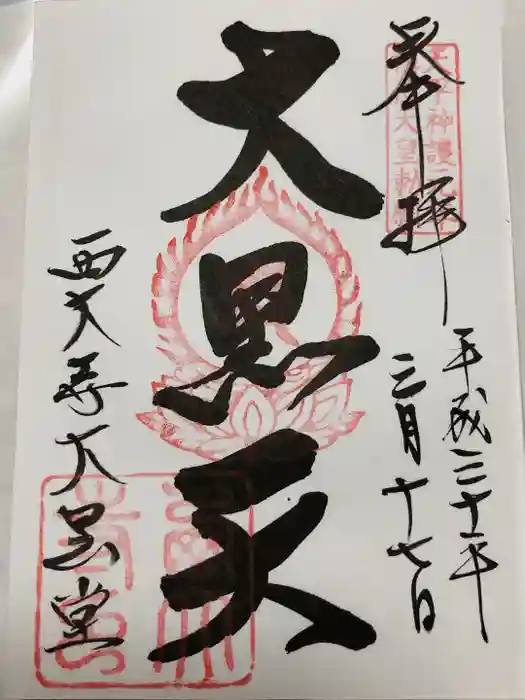 奉拝
天平神護元年
大黒天
平成三十年
三月十七日
西大寺大黒堂